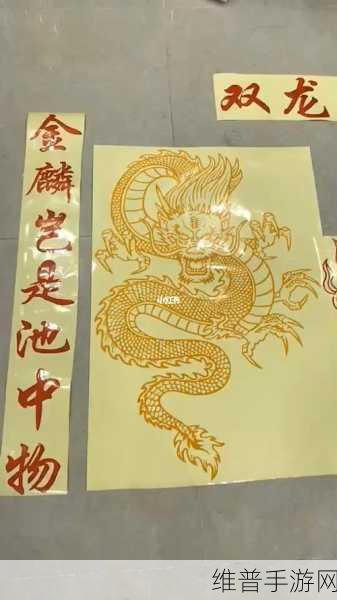 双龙
金麟岂是池中物
小红书
维普手游网